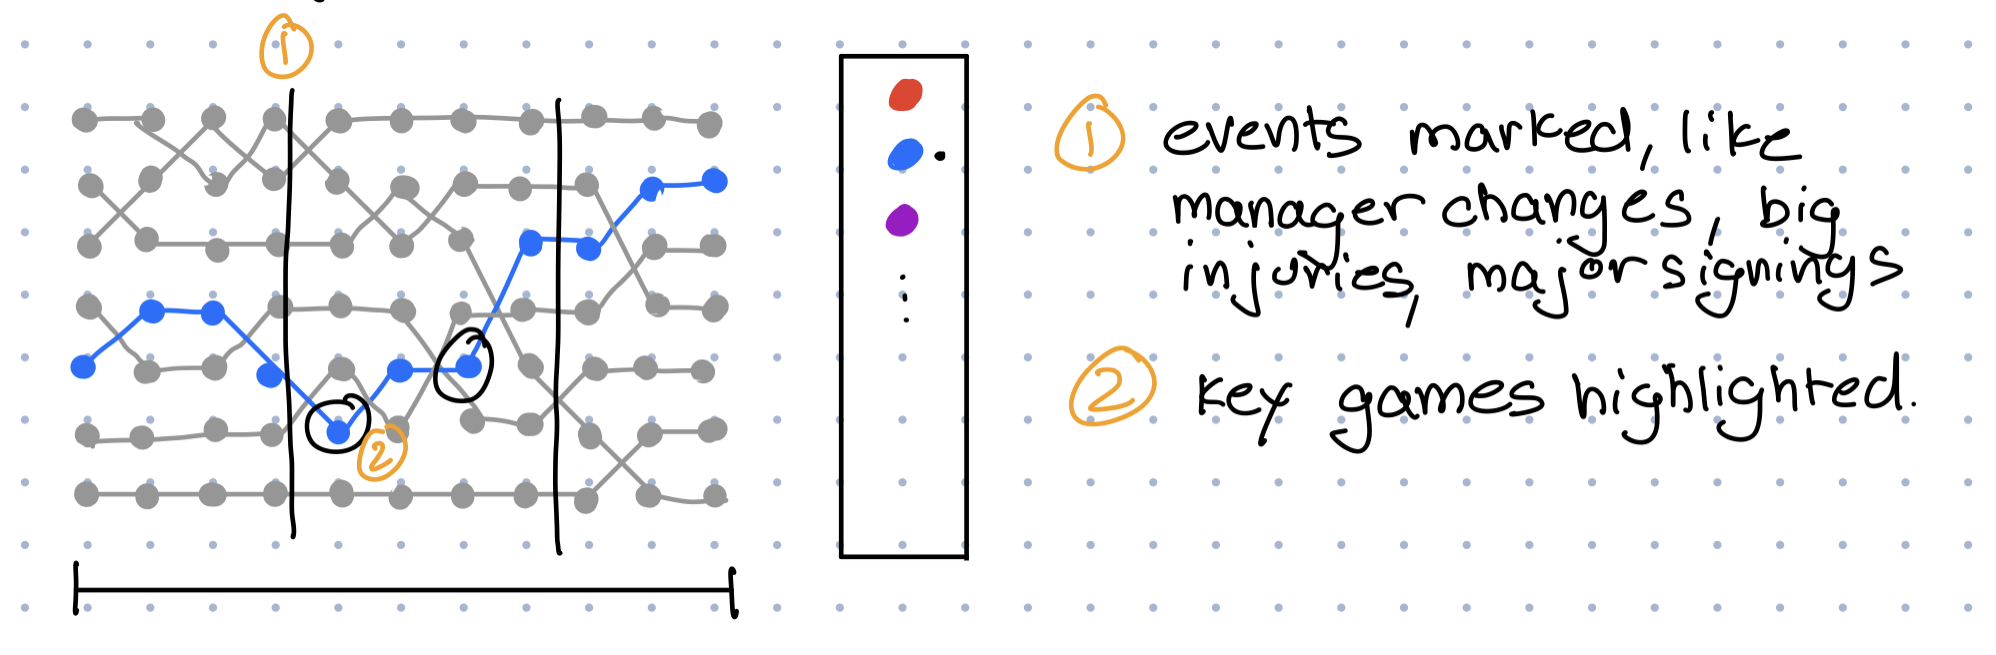 1
2
1 events marked, like
manager changes, big
injuries, major signings
2 key games highlighted.